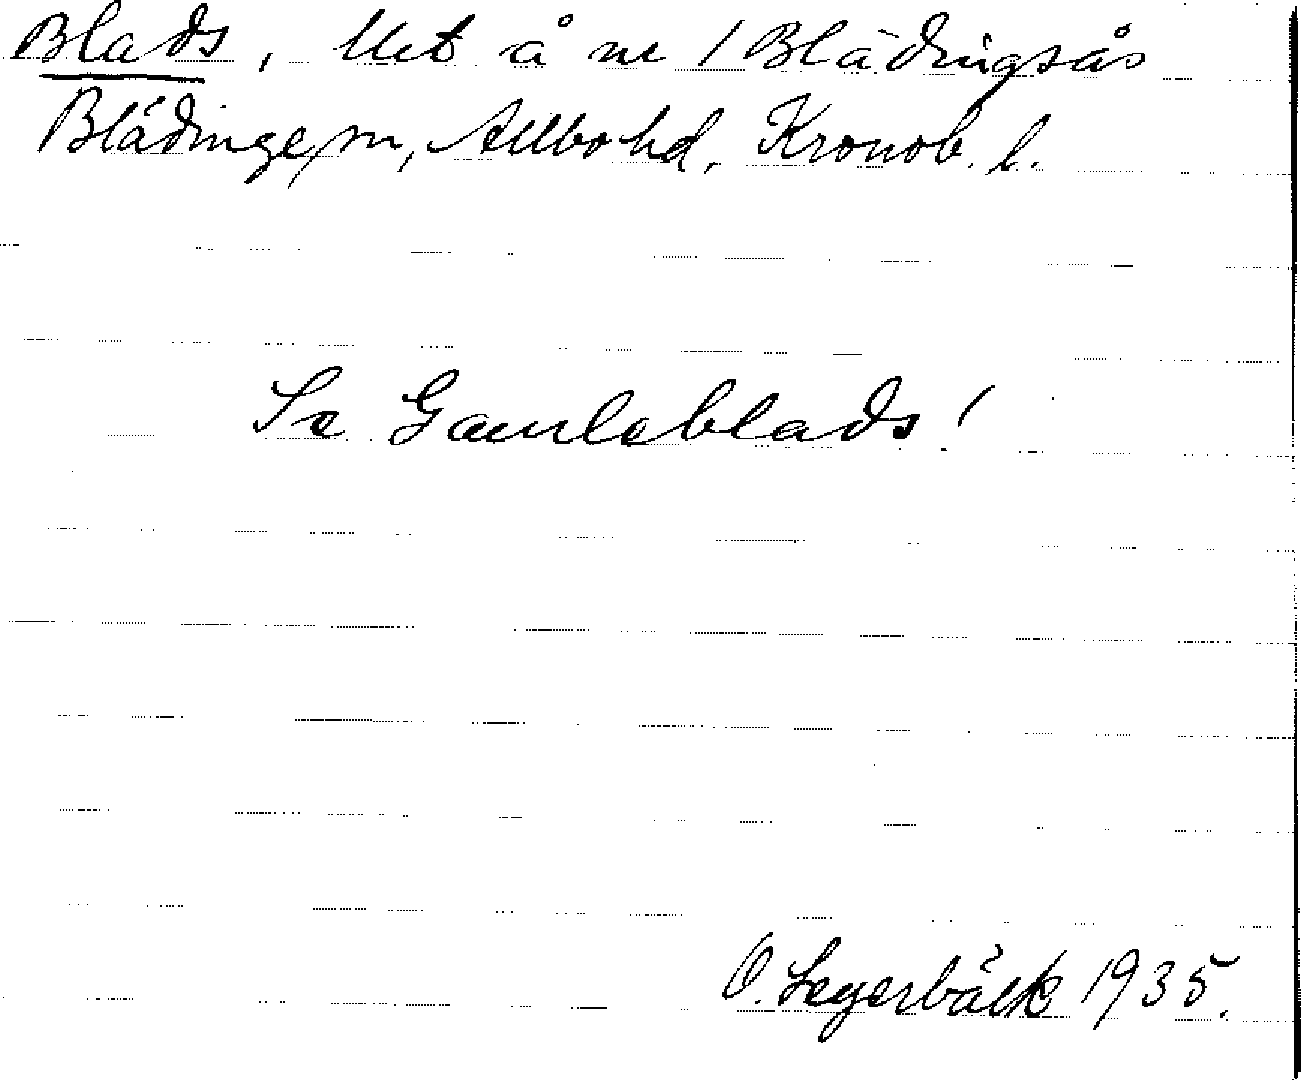 Blads, Utt å nr 1 Blädingsås
Blädinge sn, Allbo hd, Kronob. l.
Se Gamleblads!
O. Legerbäck 1935.